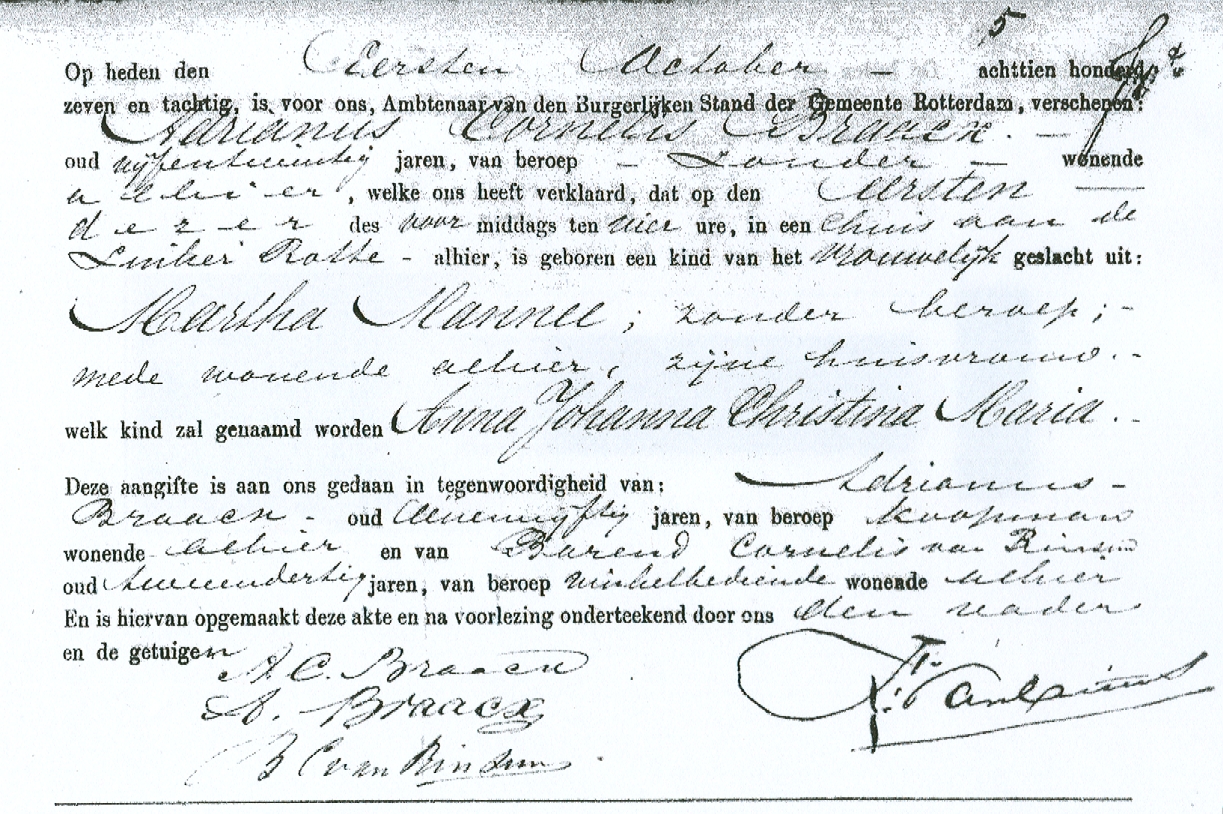 5
Op heden den Eersten October - achttien honderd
zeven en tachtig, is voor ons, Ambtenaar van den Burgerlijken Stand der Gemeente Rotterdam, verschenen:
Adrianus Cornelis Braacx. -
oud vijfentwintig jaren, van beroep - zonder - wonende
alhier, welke ons heeft verklaard, dat op den Eersten
dezer des voor middags ten vier ure, in een huis aan de
Linker Rotte - alhier, is geboren een kind van het vrouwelijk geslacht uit:
Martha Mannee; zonder beroep; -
mede wonende alhier, zijne huisvrouw. -
welk kind zal genaamd worden Anna Johanna Christina Maria. -
Deze aangifte is aan ons gedaan in tegenwoordigheid van: Adrianus -
Braacx - oud eenenvijftig jaren, van beroep koopman
wonende alhier en van Barend Cornelis van Rinsum
oud tweeendertig jaren, van beroep winkelbediende wonende alhier
En is hiervan opgemaakt deze akte en na voorlezing onderteekend door ons den vader
en de getuigen
A. C. Braacx
A. Braacx
B C van Rinsum